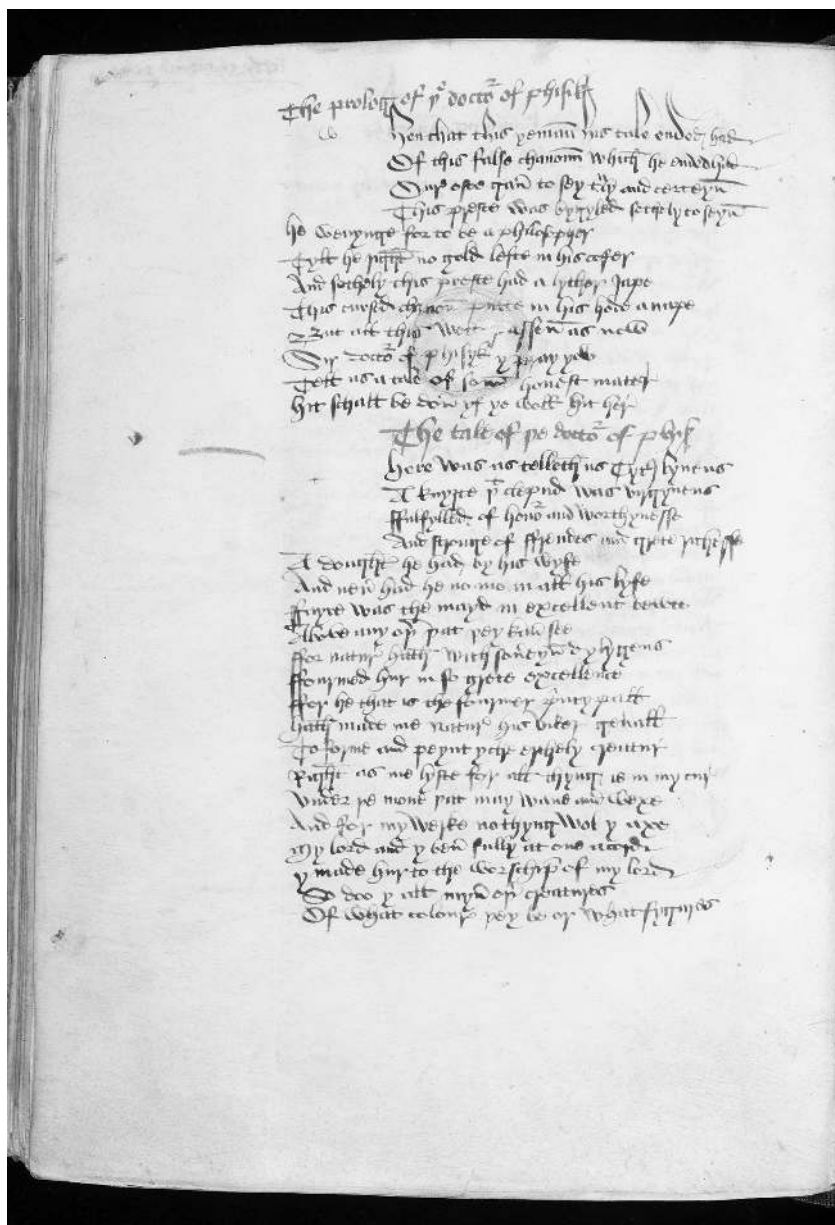 The prolog of yͤ doctoͬ of phisik
w hen that this yeman his tale ended had
Of this false chanon which he
Our oste gan to sey trʼly and certeyn
This preste was bygyled sothely to seyn
he wenynge for to be a philosopher
Tyll he right no gold lefte in his cofer
And sothely this preste had a lyther Jape
This cursed chanon putte in his hode an ape
But all this as now
Sir doctoͬ of phisyk y pray yow
Tell us a tale of som honest mater
hit schall be don yf ye woll hit her
The tale of þe doctoͬ of phisik
here was as telleth us Tytus lyueus
A knyȝte þͭ cleped was virgyneus
ffulfylled of honoͬ and worthynesse
And stronge of ffrendes and grete richesse
A doughter he had by his wyfe
And neuer had he no mo in all his lyfe
ffayre was the mayd in excellent bewte
Aboue any oþer þat þey kan see
ffor natur hath with souereyn dylygens
ffourmed hur in so grete excellence
ffor he that is the fourmer principall
hath made me natur his viker generall
To forme and peynt yche erthely creatur
Right as me lyste for all thyng is in my cur
vnder þe mone þat may wane and wexe
And for my werke nothyng wol y axe
My lord and y ben fully at one acord
y made hur to the worschip of my lord
So doo y all myn oþer creatures
Of what colour þey be or what fygures